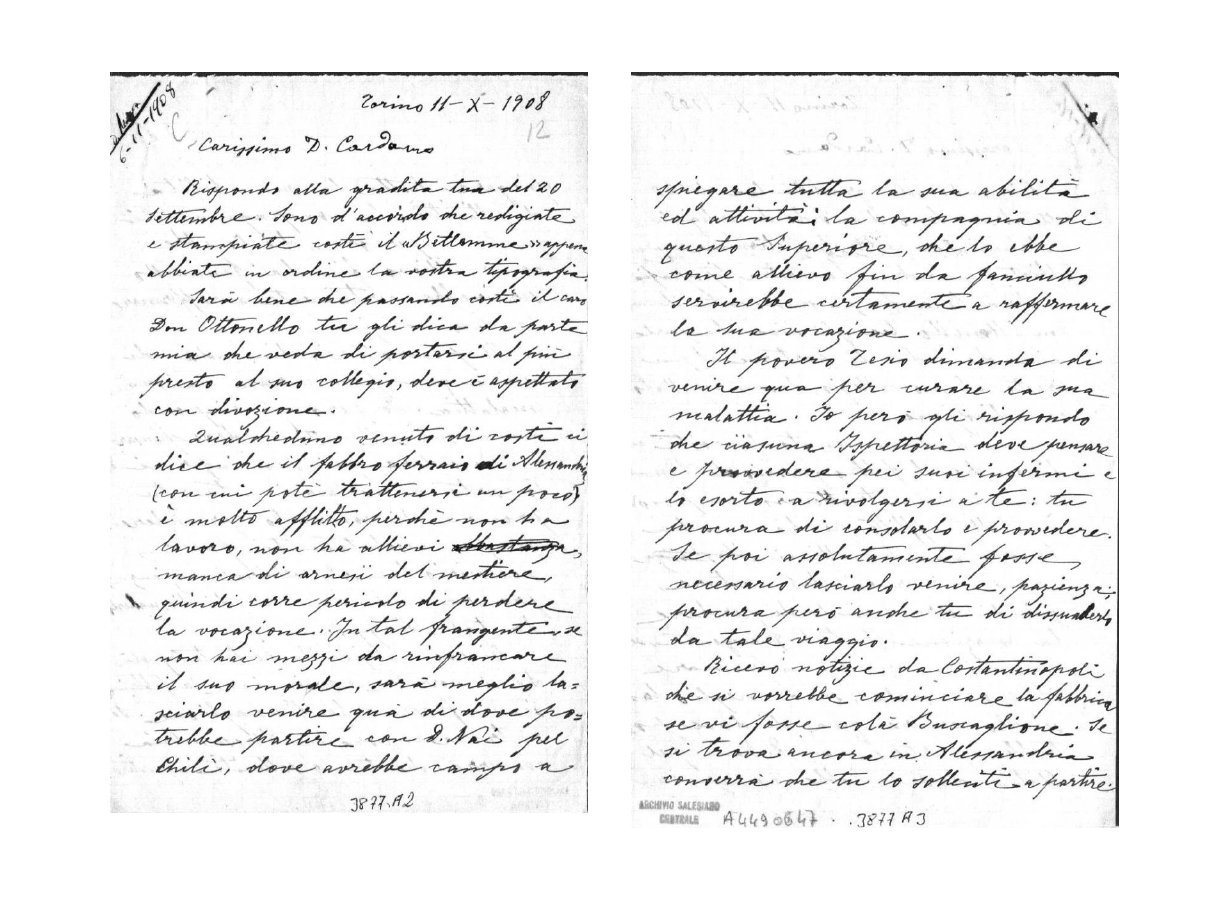 6-11-1908
C
Torino 11-X-1908
12
Carissimo D. Cardano
Rispondo alla gradita tua del 20
settembre. Sono d'accordo che redigiate
e stampiate costì il «Betlemme» appena
abbiate in ordine la vostra tipografia.
Sarà bene che passando costì il caro
Don Ottonello tu gli dica da parte
mia che veda di portarsi al più
presto al suo collegio, dove è aspettato
con divozione.
Qualcheduno venuto di costì ci
dice che il fabbro ferraio di Alessandria
(con cui potè trattenersi un poco)
è molto afflitto, perchè non ha
lavoro, non ha allievi abbastanza,
manca di arnesi del mestiere,
quindi corre pericolo di perdere
la vocazione. In tal frangente, se
non hai mezzi da rinfrancare
il suo morale, sarà meglio la=
sciarlo venire qua di dove po=
trebbe partire con D. Nai pel
Chilì, dove avrebbe campo a
3877.A2
spiegare tutta la sua abilità
ed attività; la compagnia di
questo Superiore, che lo ebbe
come allievo fin da fanciullo
servirebbe certamente a raffermare
la sua vocazione.
Il povero Tesio dimanda di
venire qua per curare la sua
malattia. Io però gli rispondo
che ciascuna Ispettoria deve pensare
e provvedere pei suoi infermi e
lo esorto a rivolgersi a te: tu
procura di consolarlo e provvedere.
Se poi assolutamente fosse
necessario lasciarlo venire, pazienza;
procura però anche tu di dissuaderlo
da tale viaggio.
Ricevo notizie da Costantinopoli
che si vorrebbe cominciare la fabbrica
se vi fosse colà Buscaglione. Se
si trova ancora in Alessandria
converrà che tu lo solleciti a partire.
ARCHIVIO SALESIANO
CENTRALE
A4490647 . .3877 A3